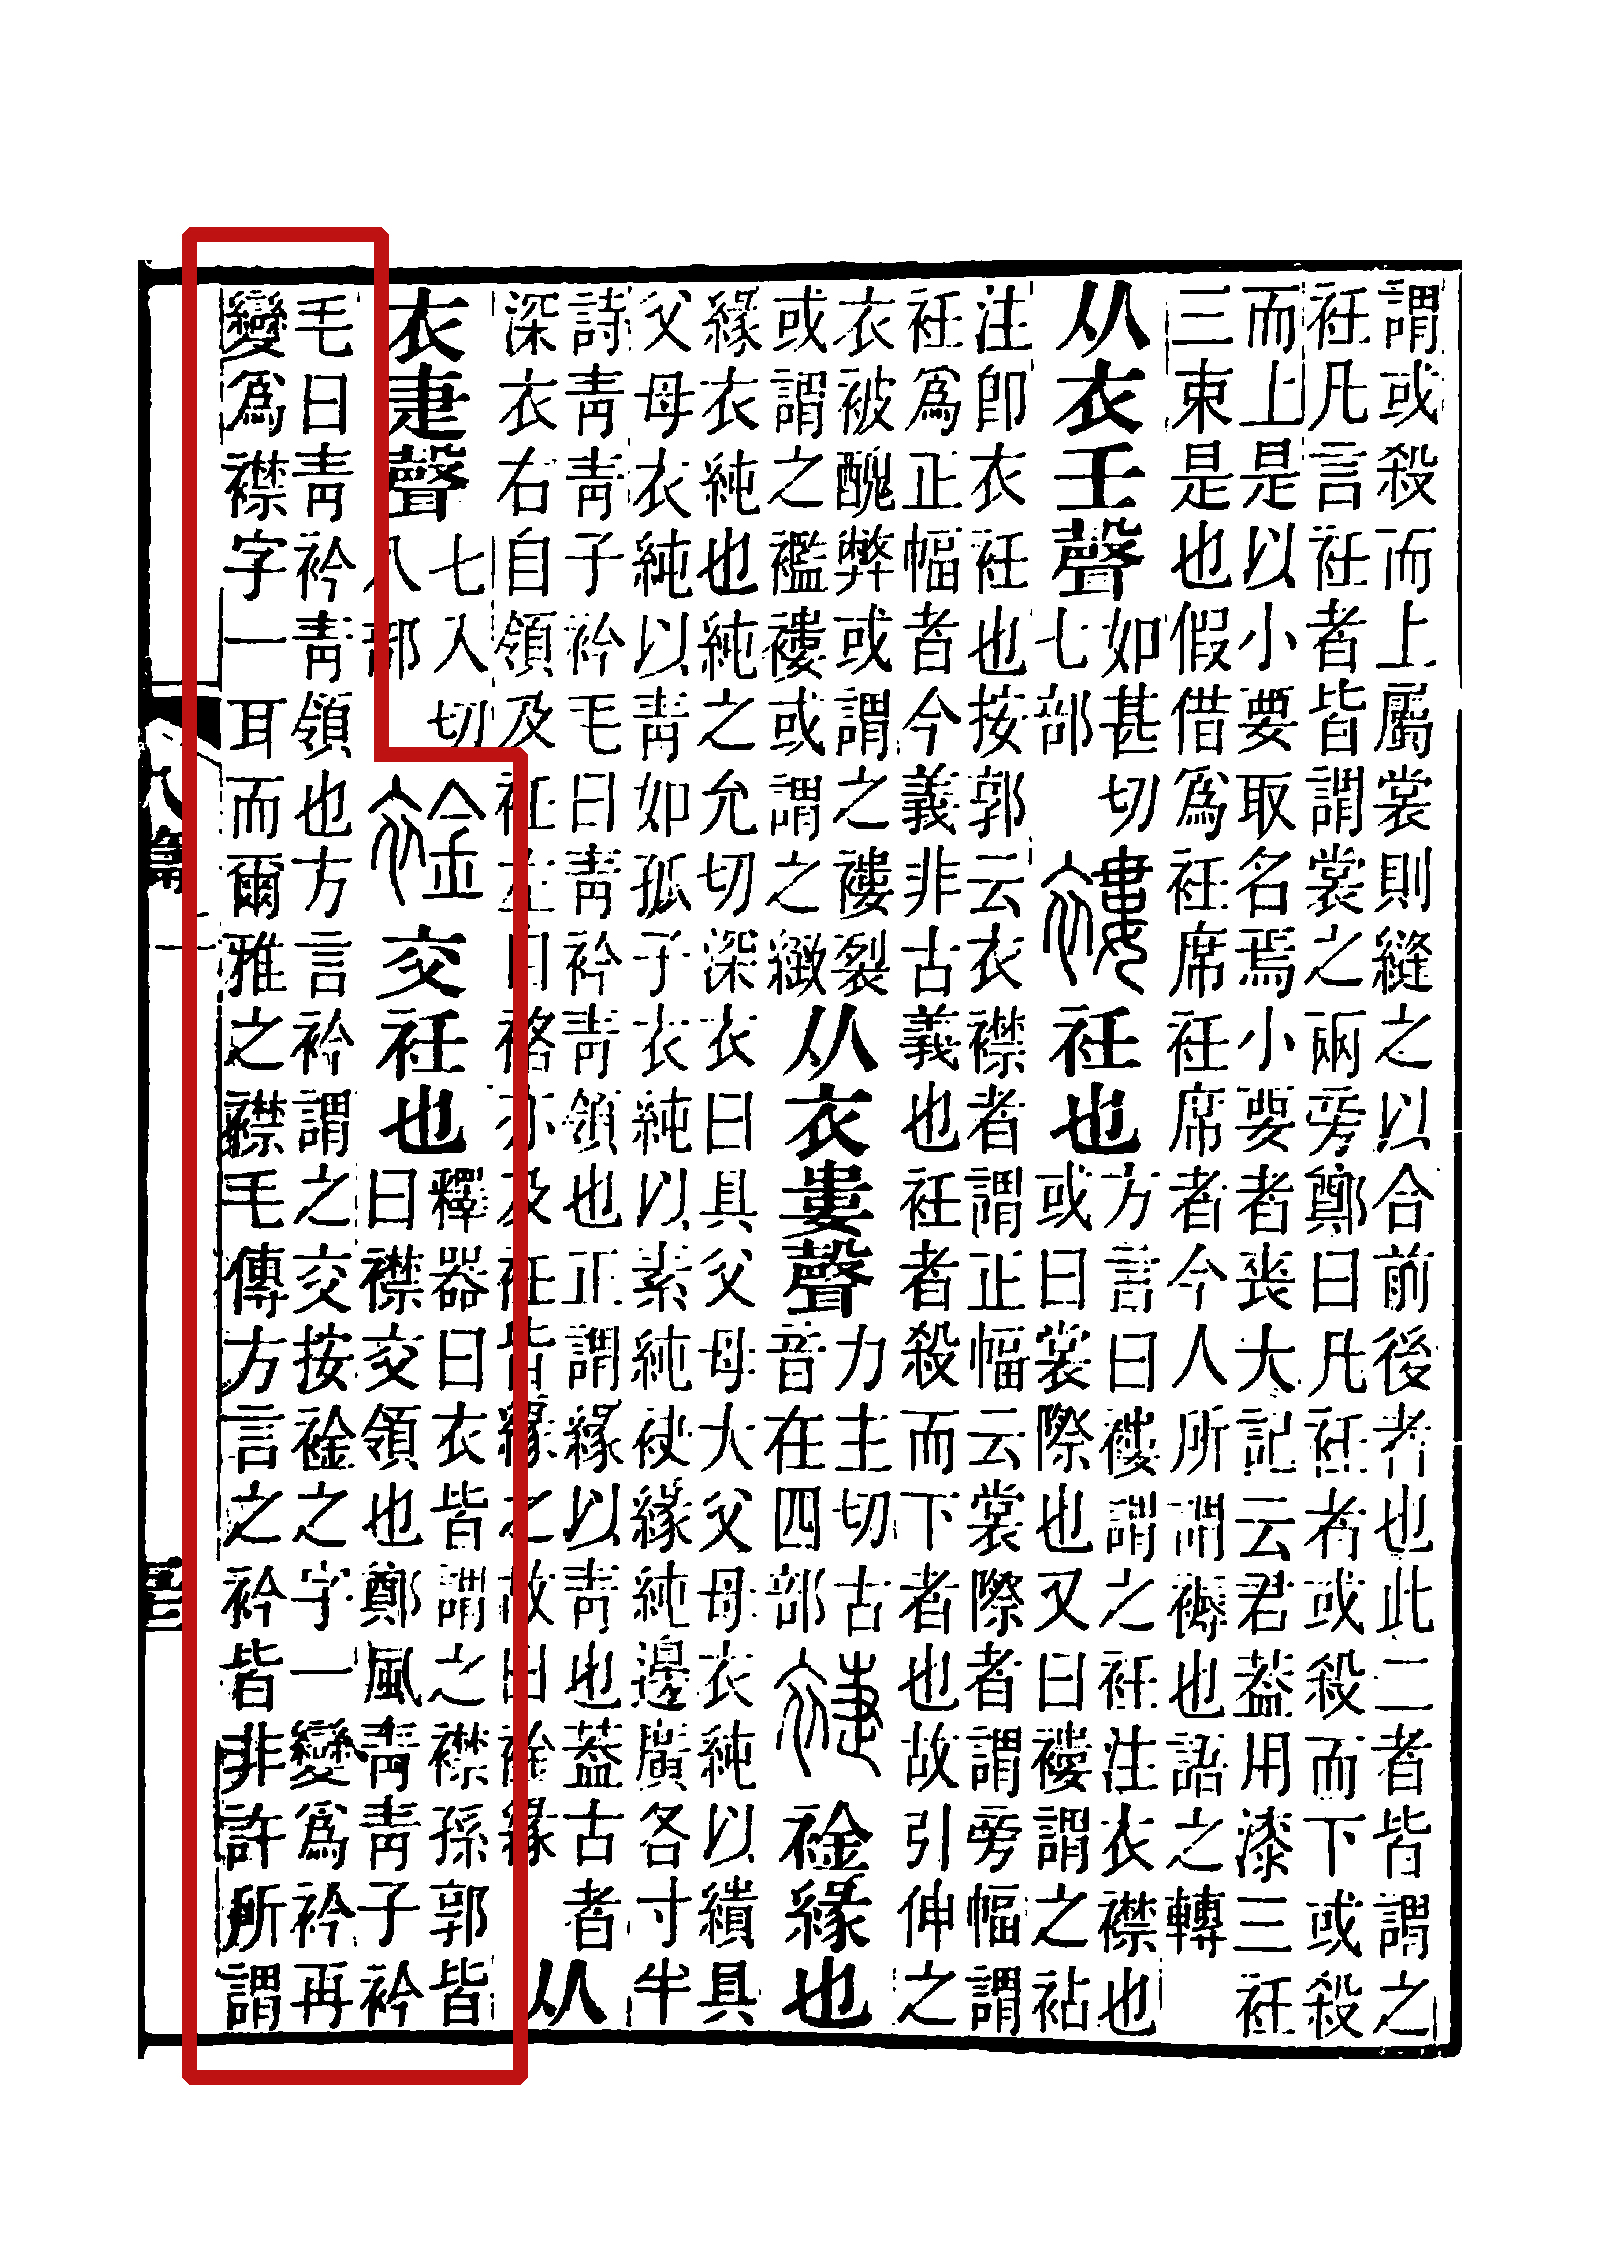 謂或殺而上屬裳則縫之以合前後者也此二者皆謂之
衽凡言衽者皆謂裳之兩旁鄭曰凡衽者或殺而下或殺
而上是以小要取名焉小要者喪大記云君葢用漆三衽
三束是也假借爲衽席衽席者今人所謂褥也語之轉
从衣壬聲
如甚切
七部
褸衽也
方言曰褸謂之衽注衣襟也
或曰裳際也又曰褸謂之袩
注卽衣衽也按郭云衣襟者謂正幅云裳際者謂旁幅謂
衽爲正幅者今義非古義也衽者殺而下者也故引伸之
衣被醜弊或謂之褸裂
或謂之襤褸或謂之緻
从衣婁聲
力主切古
音在四部
䘳緣也
緣衣純也純之允切深衣曰具父母大父母衣純以繢具
父母衣純以青如孤子衣純以素純袂緣純邊廣各寸半
詩青青子衿毛曰青衿青領也正謂緣以青也葢古者
深衣右自領及衽左自袼亦及衽皆緣之故曰䘳緣
从
衣疌聲
七入切
八部
䘳交衽也
釋器曰衣皆謂之襟孫郭皆
曰襟交領也鄭風青青子衿
毛曰青衿青領也方言衿謂之交按䘳之字一變爲衿再
變爲襟字一耳而爾雅之襟毛傳方言之衿皆非許所謂